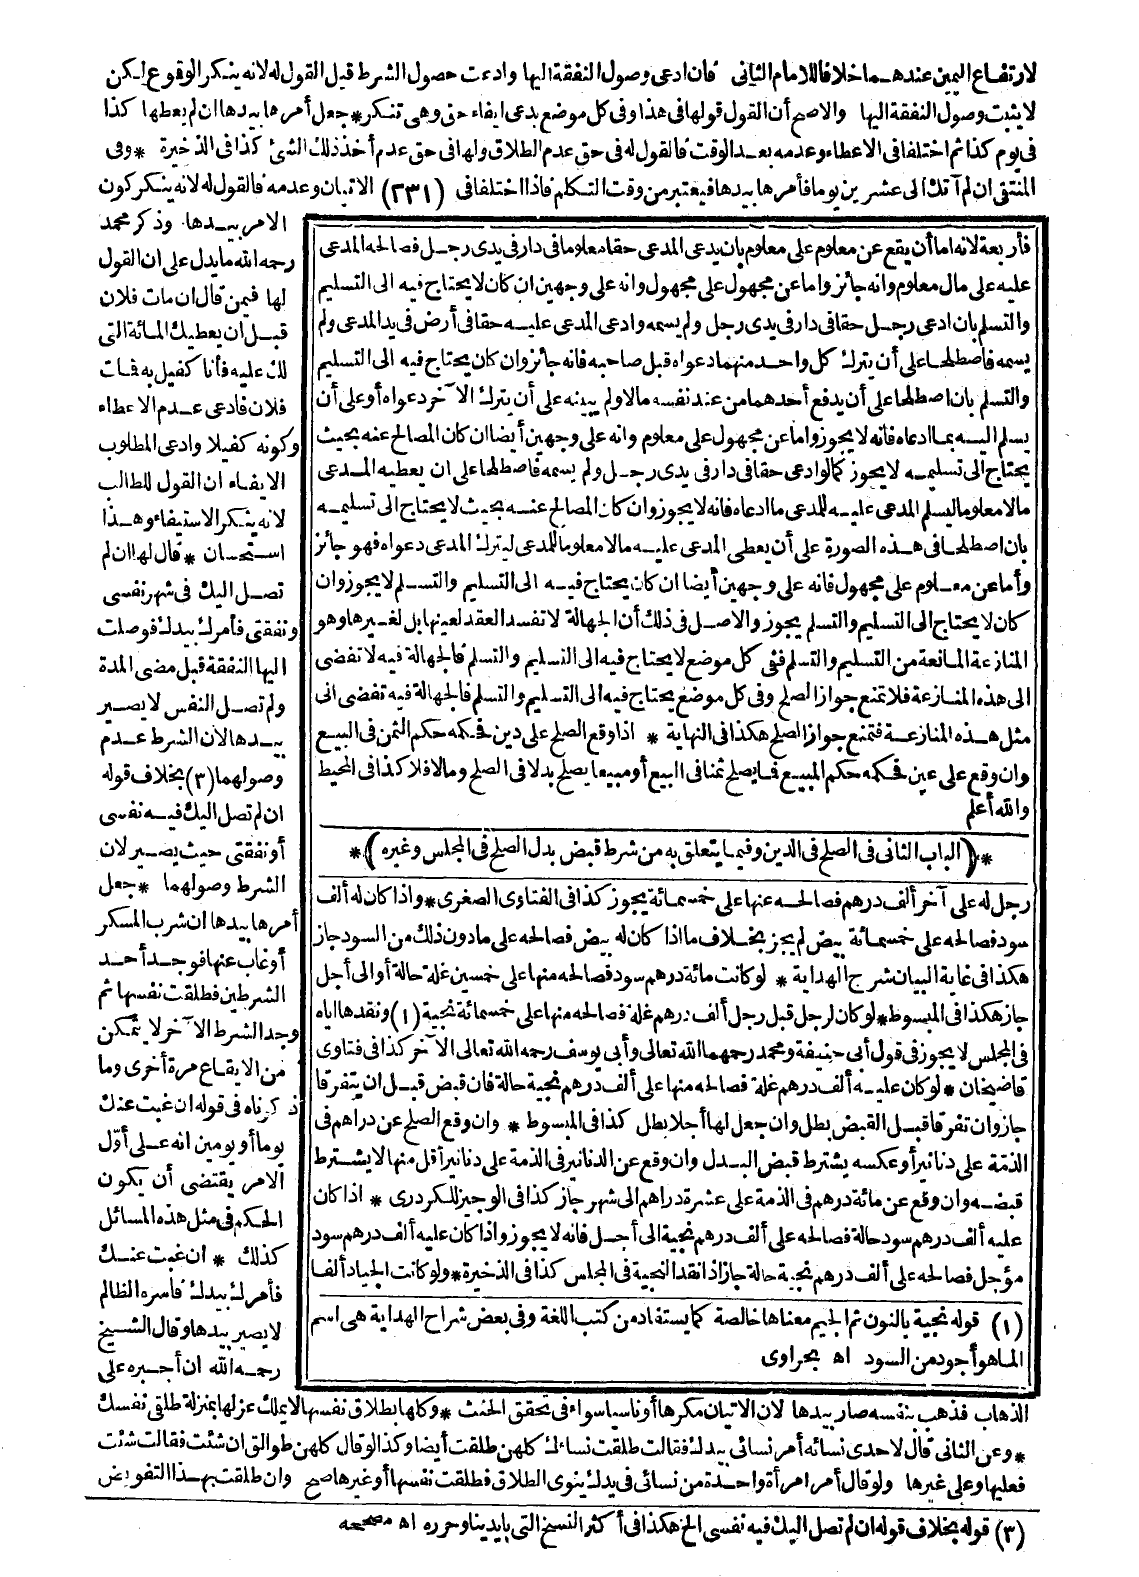 لارتفاع اليمين عندهما خلافا للامام الثانى فان ادعى وصول النفقة اليها وادعت حصول الشرط قبل القول له لانه ينكر الوقوع لكن
لا يثبت وصول النفقة اليها والاصح أن القول قولها فى هذا وفى كل موضع يدعى ايفاء حق وهى تنكر * جعل أمرها بيدها ان لم يعطها كذا
فى يوم كذا ثم اختلفا فى الاعطاء وعدمه بعد الوقت فالقول له فى حق عدم الطلاق ولها فى حق عدم أخذ ذلك الشئ كذا فى الذخيرة * وفى
المنتقى ان لم آتك الى عشرين يوما فأمرها بيدها فيعتبر من وقت التكلم فاذا اختلفا فى (٢٣١) الاتيان وعدمه فالقول له لانه ينكر كون
الامر بيدها وذكر محمد
رحمه الله ما يدل على ان القول
لها فيمن قال ان مات فلان
قبل ان يعطيك المائة التى
لك عليه فأنا كفيل به فمات
فلان فادعى عدم الاعطاء
وكونه كفيلا وادعى المطلوب
الايفاء ان القول للطالب
لانه ينكر الاستيفاء وهذا
استحسان * قال لها ان لم
تصل اليك فى شهر نفسى
ونفقتى فأمرك بيدك فوصلت
اليها النفقة قبل مضى المدة
ولم تصل النفس لا يصير
بيدها لان الشرط عدم
وصولهما (٣) بخلاف قوله
ان لم تصل اليك فيه نفسى
أو نفقتى حيث يصير لان
الشرط وصولهما * جعل
أمرها بيدها ان شرب المسكر
أو غاب عنها فوجد أحد
الشرطين فطلقت نفسها ثم
وجد الشرط الآخر لا يتمكن
من الايقاع مرة أخرى وما
ذكرناه فى قوله ان غبت عنك
يوما أو يومين انه على أول
الامر يقتضى أن يكون
الحكم فى مثل هذه المسائل
كذلك * ان غبت عنك
فأمرك بيدك فأسره الظالم
لا يصير بيدها وقال الشيخ
رحمه الله ان أجبره على
فأربعة لانه اما أن يقع عن معلوم على معلوم بان يدعى المدعى حقا معلوما فى دار فى يدى رجل فصالحه المدعى
عليه على مال معلوم وانه جائز واما عن مجهول على مجهول وانه على وجهين ان كان لا يحتاج فيه الى التسليم
والتسلم بان ادعى رجل حقا فى دار فى يدى رجل ولم يسمه وادعى المدعى عليه حقا فى أرض فى يد المدعى ولم
يسمه فاصطلحا على أن يترك كل واحد منهما دعواه قبل صاحبه فانه جائز وان كان يحتاج فيه الى التسليم
والتسلم بان اصطلحا على أن يدفع أحدهما من عند نفسه مالا ولم يبينه على أن يترك الآخر دعواه أو على أن
يسلم اليه بما ادعاه فانه لا يجوز واما عن مجهول على معلوم وانه على وجهين أيضا ان كان المصالح عنه بحيث
يحتاج الى تسليمه لا يجوز كما لو ادعى حقا فى دار فى يدى رجل ولم يسمه فاصطلحا على ان يعطيه المدعى
مالا معلوما ليسلم المدعى عليه للمدعى ما ادعاه فانه لا يجوز وان كان المصالح عنه بحيث لا يحتاج الى تسليمه
بان اصطلحا فى هذه الصورة على أن يعطى المدعى عليه مالا معلوما للمدعى ليترك المدعى دعواه فهو جائز
وأما عن معلوم على مجهول فانه على وجهين أيضا ان كان يحتاج فيه الى التسليم والتسلم لا يجوز وان
كان لا يحتاج الى التسليم والتسلم يجوز والاصل فى ذلك أن الجهالة لا تفسد العقد لعينها بل لغيرها وهو
المنازعة المانعة من التسليم والتسلم ففى كل موضع لا يحتاج فيه الى التسليم والتسلم فالجهالة فيه لا تفضى
الى هذه المنازعة فلا تمنع جواز الصلح وفى كل موضع يحتاج فيه الى التسليم والتسلم فالجهالة فيه تفضى الى
مثل هذه المنازعة فتمنع جواز الصلح هكذا فى النهاية * اذا وقع الصلح على دين فحكمه حكم الثمن فى البيع
وان وقع على عين فحكمه حكم المبيع فما يصلح ثمنا فى البيع أو مبيعا يصلح بدلا فى الصلح وما لا فلا كذا فى المحيط
والله أعلم
*(الباب الثانى فى الصلح فى الدين وفيما يتعلق به من شرط قبض بدل الصلح فى المجلس وغيره)*
رجل له على آخر ألف درهم فصالحه عنها على خمسمائة يجوز كذا فى الفتاوى الصغرى * واذا كان له ألف
سود فصالحه على خمسمائة بيض لم يجز بخلاف ما اذا كان له بيض فصالحه على ما دون ذلك من السود جاز
هكذا فى غاية البيان شرح الهداية * لو كانت مائة درهم سود فصالحه منها على خمسين غلة حالة أو الى أجل
جاز هكذا فى المبسوط * لو كان لرجل قبل رجل ألف درهم غلة فصالحه منها على خمسمائة نجية (١) ونقدها اياه
فى المجلس لا يجوز فى قول أبى حنيفة ومحمد رحمهما الله تعالى وأبى يوسف رحمه الله تعالى الآخر كذا فى فتاوى
قاضيخان * لو كان عليه ألف درهم غلة فصالحه منها على ألف درهم نجية حالة فان قبض قبل ان يتفرقا
جاز وان تفرقا قبل القبض بطل وان جعل لها أجلا بطل كذا فى المبسوط * وان وقع الصلح عن دراهم فى
الذمة على دنانير أو عكسه يشترط قبض البدل وان وقع عن الدنانير فى الذمة على دنانير أقل منها لا يشترط
قبضه وان وقع عن مائة درهم فى الذمة على عشرة دراهم الى شهر جاز كذا فى الوجيز للكردرى * اذا كان
عليه ألف درهم سود حالة فصالحه على ألف درهم نجية الى أجل فانه لا يجوز واذا كان عليه ألف درهم سود
مؤجل فصالحه على ألف درهم نجية حالة جاز اذا نقد النجية فى المجلس كذا فى الذخيرة * ولو كانت الجياد ألفا
(١) قوله نجية بالنون ثم الجيم معناها خالصة كما يستفاد من كتب اللغة وفى بعض شراح الهداية هى اسم
لما هو أجود من السود اه بحراوى
الذهاب فذهب بنفسه صار بيدها لان الاتيان مكرها أو ناسيا سواء فى تحقق الحنث * وكلها بطلاق نفسها لا يملك عزلها بمنزلة طلقى نفسك
* وعن الثانى قال لاحدى نسائه أمر نسائى بيدك فقالت طلقت نساءك كلهن طلقت أيضا وكذا لو قال كلهن طوالق ان شئت فقالت شئت
فعليها وعلى غيرها ولو قال أمر امرأة واحدة من نسائى فى يدك ينوى الطلاق فطلقت نفسها أو غيرها صح وان طلقت بهذا التفويض
(٣) قوله بخلاف قوله ان لم تصل اليك فيه نفسى الخ هكذا فى أكثر النسخ التى بايدينا وحرره اه مصححه